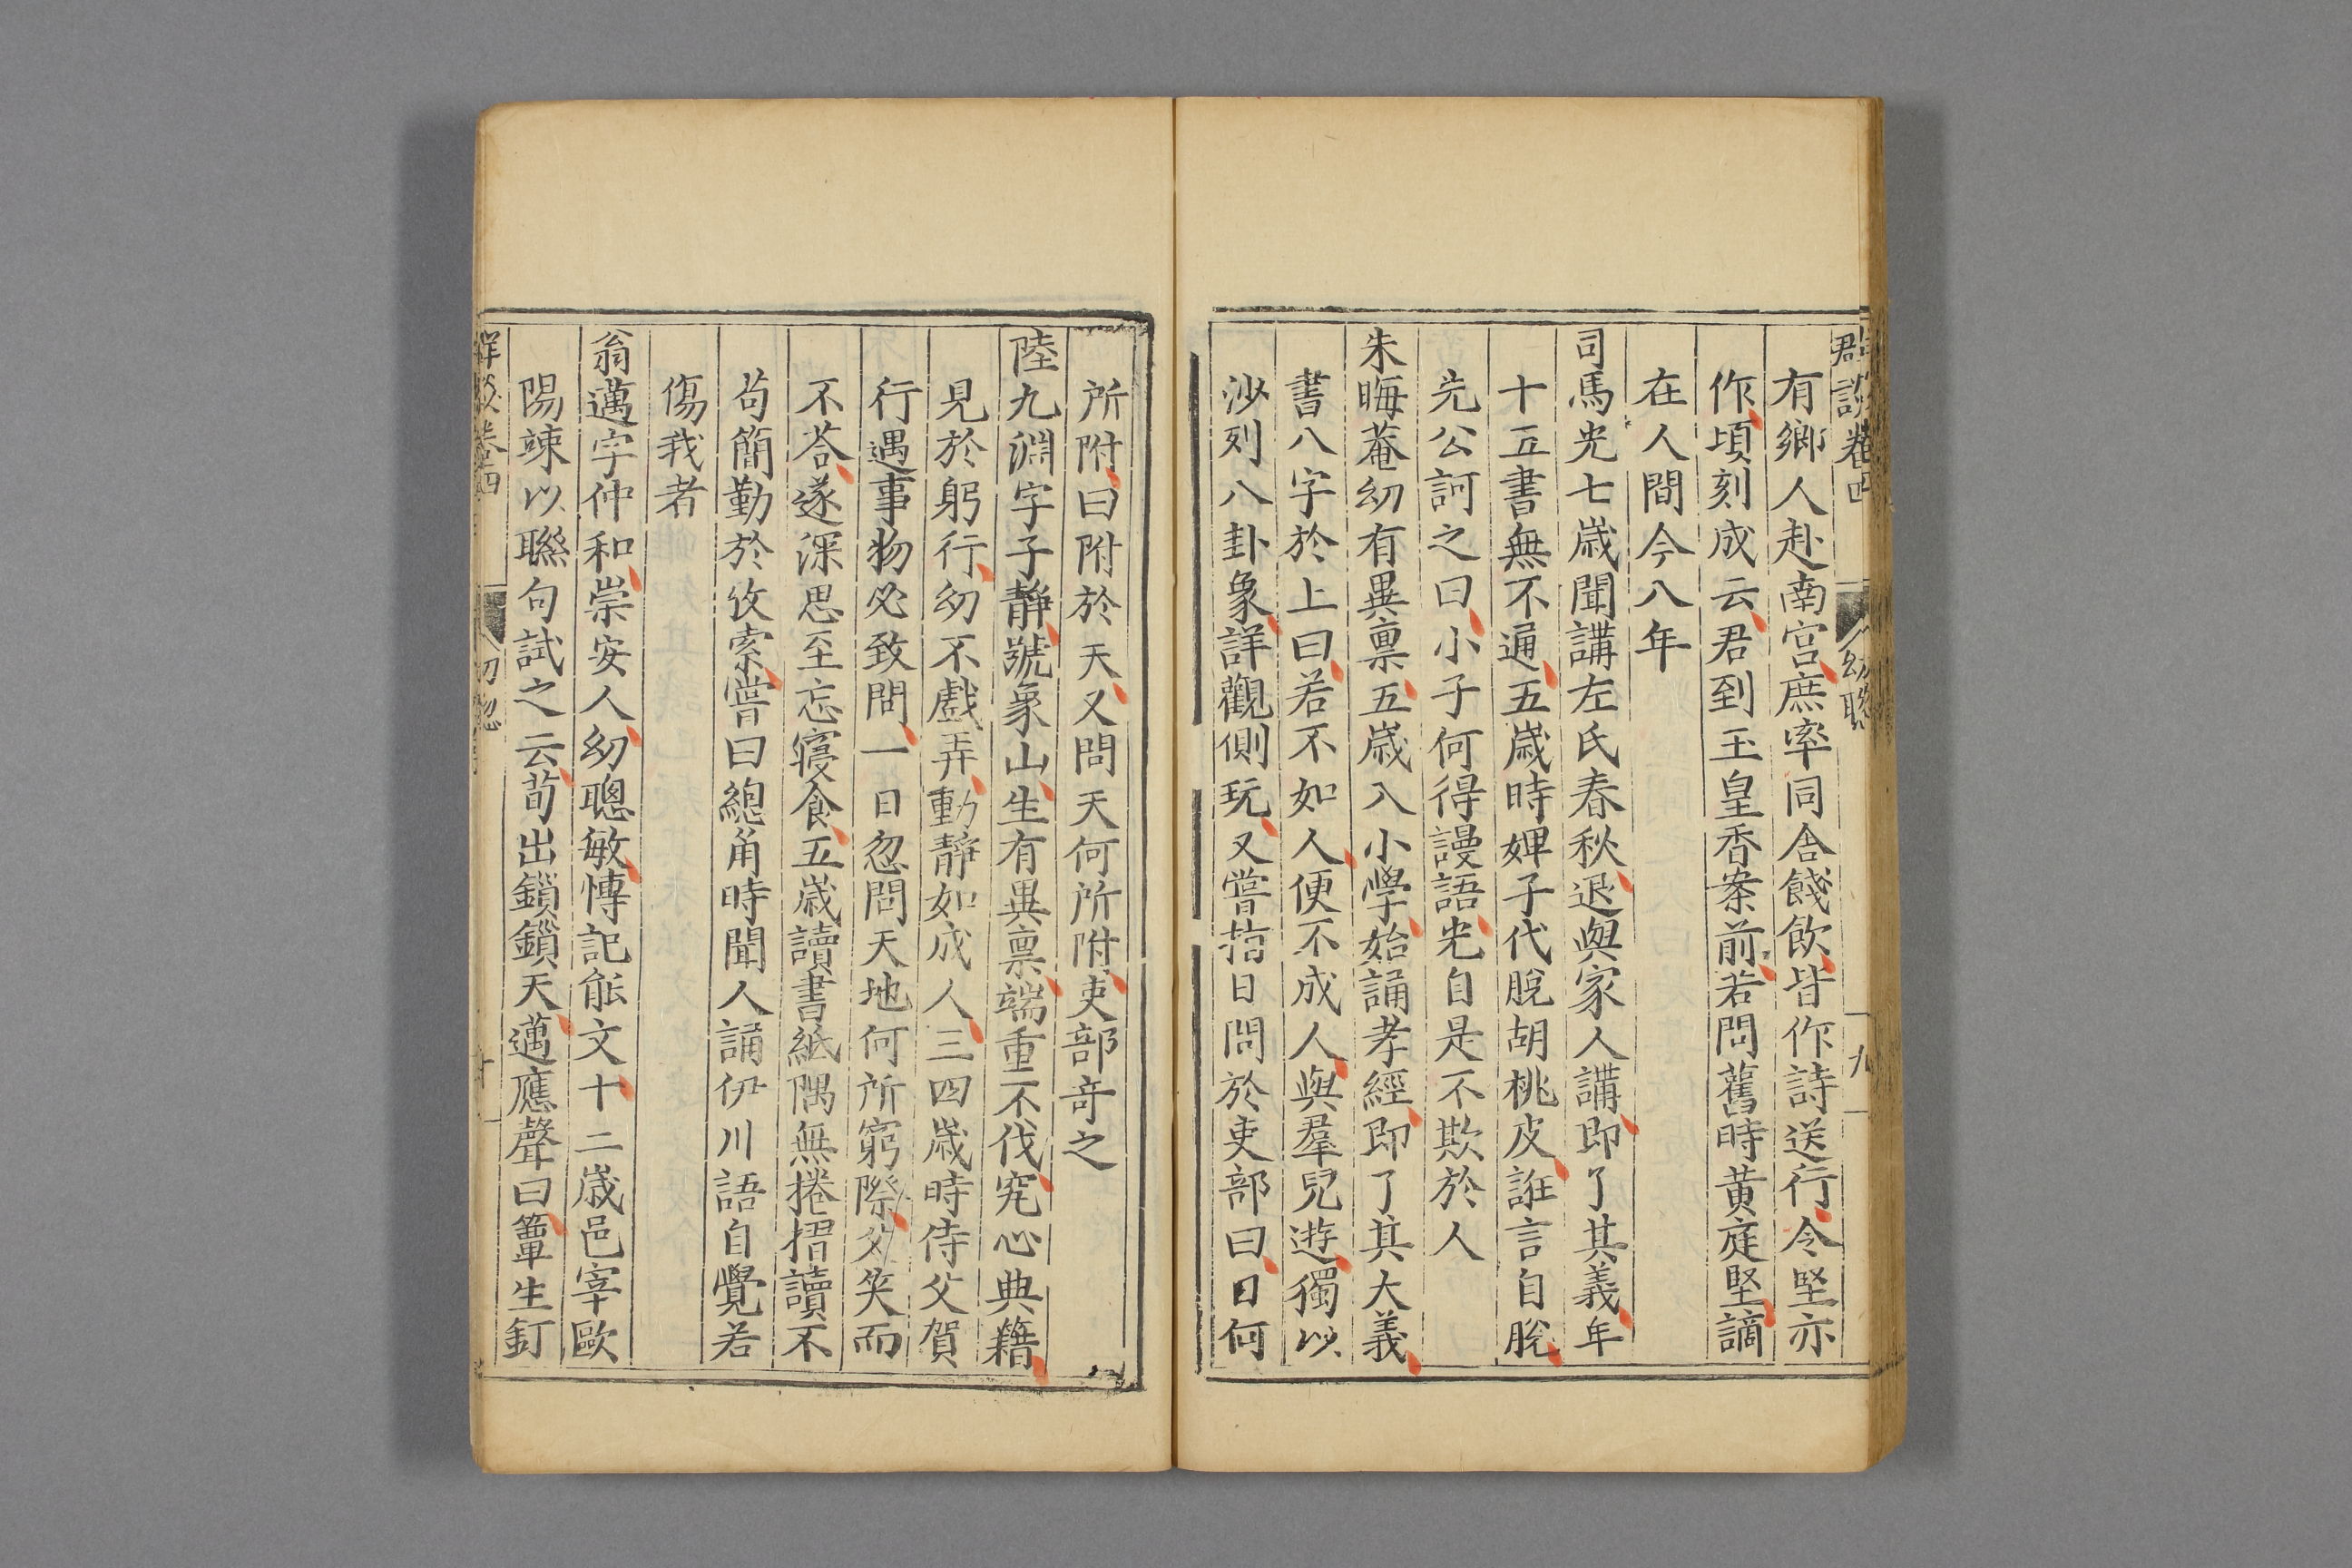 群談卷四 幼聰 九
有鄉人赴南宫庶率同舎餞飲皆作詩送行令堅亦
作頃刻成云君到玉皇香案前若問舊時黄庭堅謫
在人間今八年
司馬光七歳聞講左氏春秋退與家人講即了其義年
十五書無不通五歳時婢子代脫胡桃皮誑言自脫
先公訶之曰小子何得謾語光自是不欺於人
朱晦菴幼有異禀五歳入小學始誦孝經即了其大義
書八字於上曰若不如人便不成人與羣兒遊獨以
沙列八卦象詳觀側玩又嘗指日問於吏部曰日何
所附曰附於天又問天何所附吏部竒之
陸九淵字子静號象山生有異禀端重不伐究心典籍
見於躬行幼不戲弄動静如成人三四歳時侍父賀
行遇事物必致問一日忽問天地何所窮際父笑而
不荅遂深思至忘寢食五歳讀書紙隅無捲摺讀不
茍簡勤於攷索嘗曰緫角時聞人誦伊川語自覺若
傷我者
翁邁字仲和崇安人幼聰敏慱記能文十二歳邑宰歐
陽竦以聮句試之云荀出鎻鎻天邁應聲曰蕈生釘
群談卷四 幼聰 十